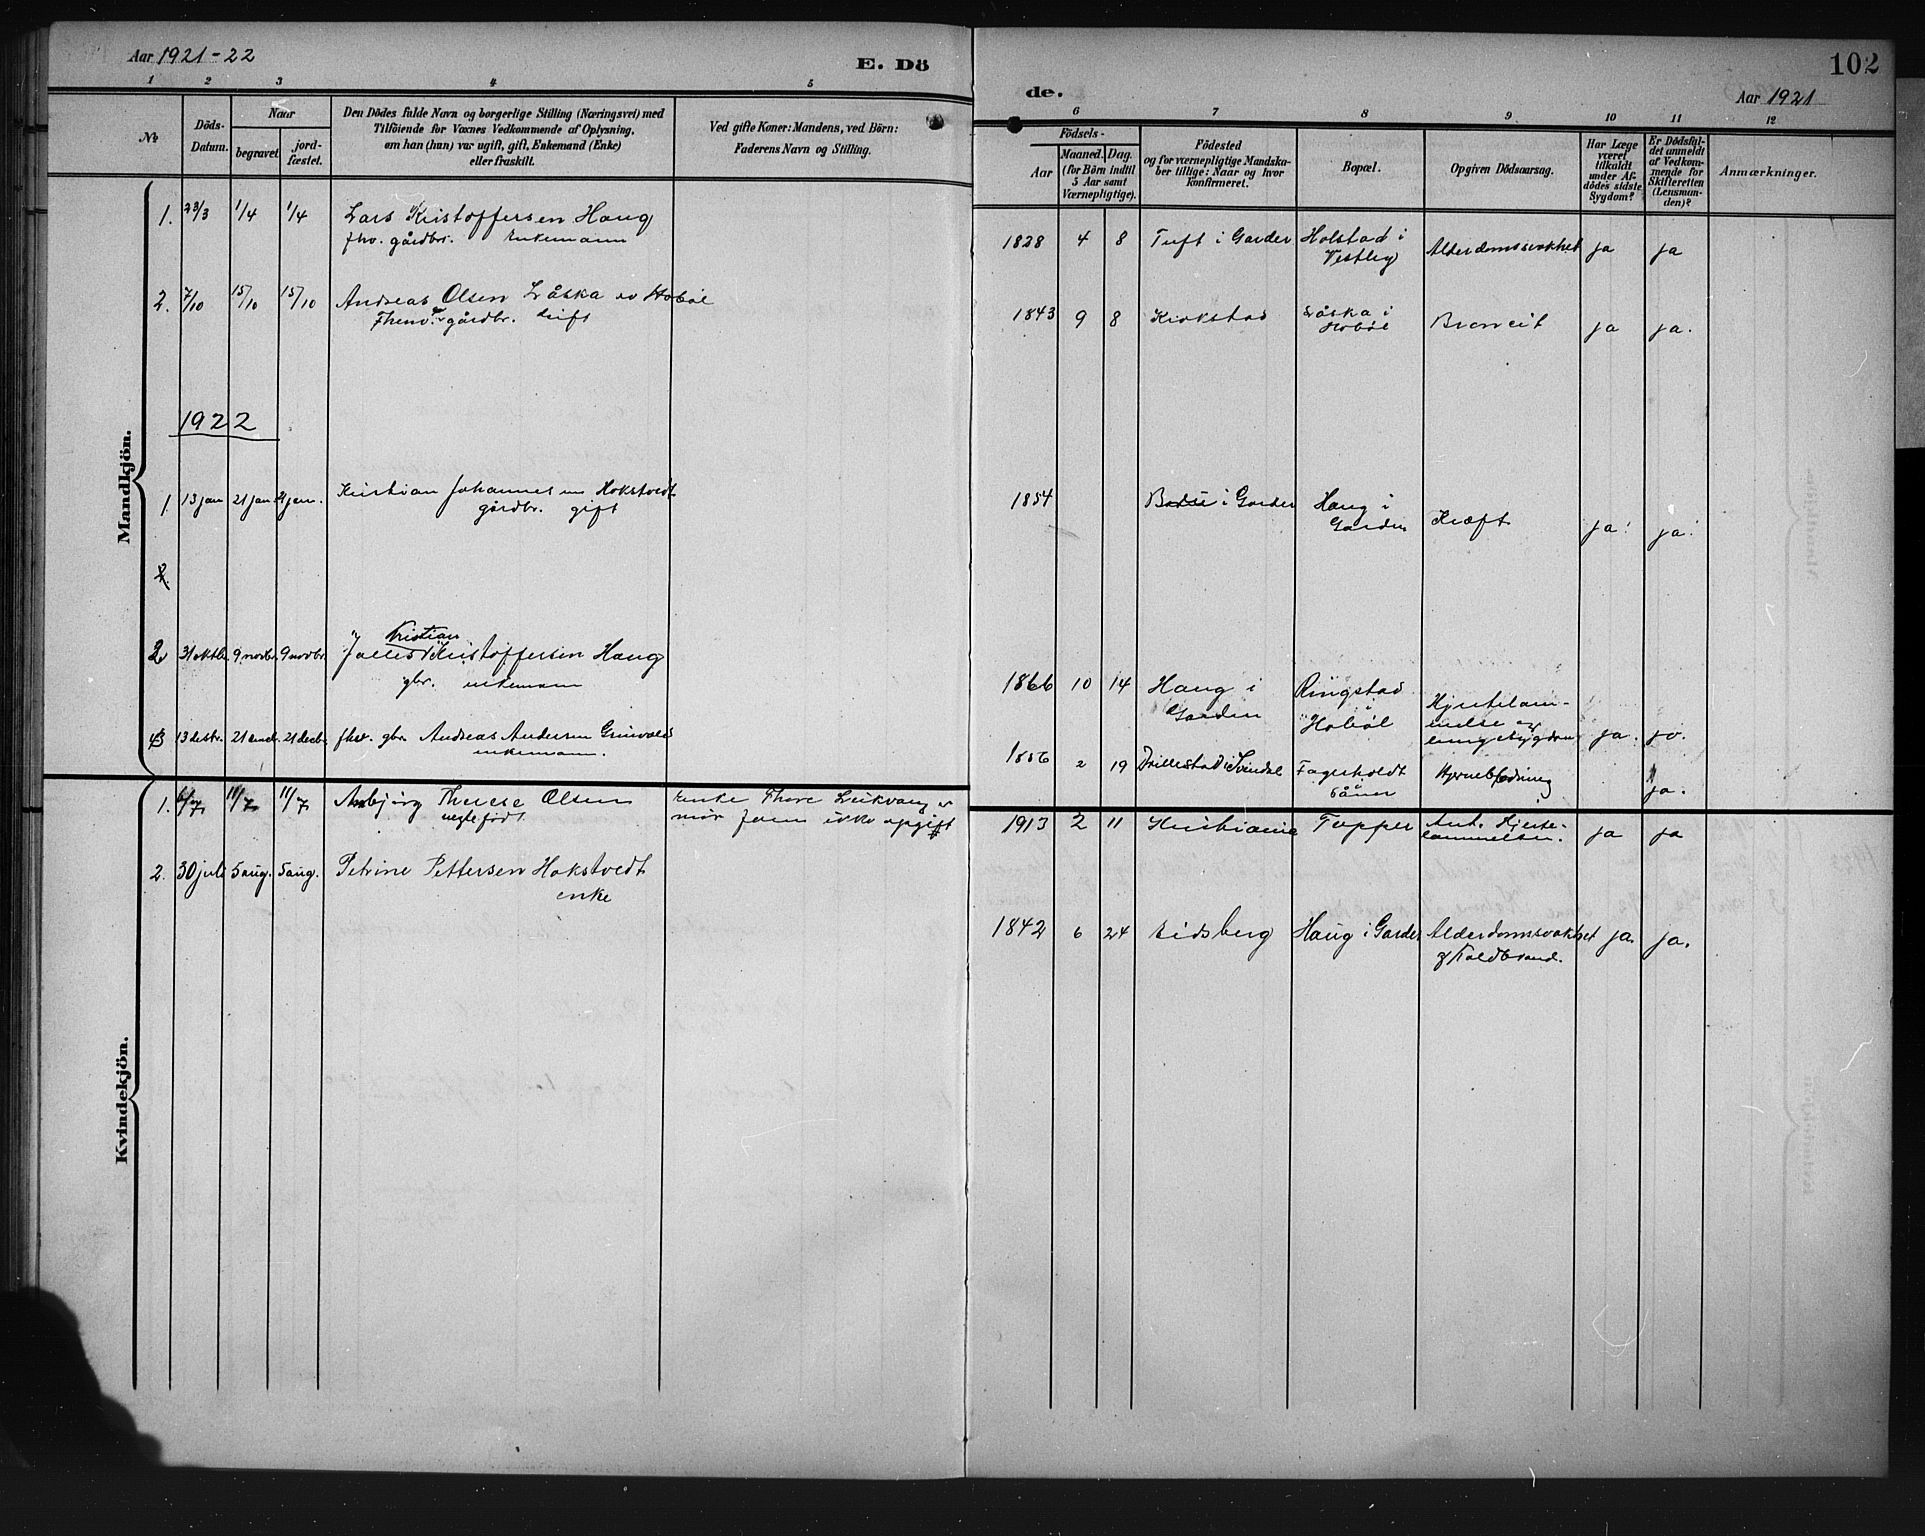 Aar 1921-22
E. Dö
1 2 3 4 5
№
Döds-
Datum.
Naar
begravet.
jord-
fæstet.
Den Dödes fulde Navn og borgerlige Stilling (Næringsvei) med
Tilföiende for Voxnes Vedkommende af Oplysning,
om han (hun) var ugift, gift, Enkemand (Enke)
eller fraskilt.
Ved gifte Koner: Mandens, ved Börn:
Faderens Navn og Stilling.
Mandkjön.
1. 23/3 1/4 1/4 Lars Kristoffersen Haug
fhv. gårdbr. Enkemann
2. 7/10 15/10 15/10 Andreas Olsen Låska av Hobøl
gårdbr. gift
1922
1 13 jan 21 jan. 21 jan. Kristian Johannes Hokstvedt
gårdbr. gift
2.
Kristian
2 31 oktbr. 9 novbr. 9 novbr. Kristoffersen Haug
gbr. enkemann
3 13 desbr. 21 decbr. 21 decbr. fhv. gbr. Andreas Andersen Grinvold
enkemann.
Kvindekjön.
1. 6/7 11/7 11/7 Asbjörg Therese Olsen
uegte født
Enke Thore Leikvang er
mor faren ikke opgift
2. 30 juli 5 aug. 5 aug. Petrine Pettersen Hokstvedt
enke
102
de.
Aar 1921
6 7 8 9 10 11 12
Födsels-
Aar
Maaned. Dag.
(for Börn indtil
5 Aar samt
Værnepligtige).
Födested
og for værnepligtige Mandska-
ber tillige: Naar og hvor
Konfirmeret.
Bopæl.
Opgiven Dödsaarsag.
Har Læge
været
tilkaldt
under Af-
dödes sidste
Sygdom?
Er Dödsfal-
det anmeldt
af Vedkom-
mende for
Skifteretten
(Lensman-
den)?
Anmærkninger.
1828 4 8 Tuft i Garder Holstad i
Vestby Alderdomssvakhet ja ja
1843 9 8 Krokstad Låska i
Hobøl ja ja.
1854 i Garder Haug i
Garder Kræft ja! ja!
1866 10 14 Haug i
Garder Ringstad
i Hobøl Hjertelam-
melse og
ja. ja.
1856 2 19 Drillestad i Svindal Fagerholdt
Såner Hjerneblødning ja.
1913 2 11 Kristiania Topper Ant. Hjerte-
lammelsen. ja ja
1842 6 24 Eidsberg Haug i Garder Alderdomssvakhet
og Koldbrand. ja. ja.